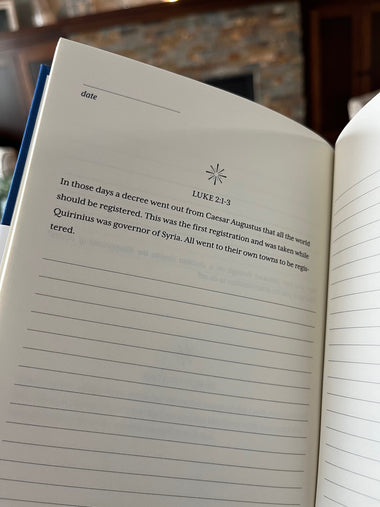 date
LUKE 2:1-3
In those days a decree went out from Caesar Augustus that all the world
should be registered. This was the first registration and was taken while
Quirinius was governor of Syria. All went to their own towns to be regis-
tered.